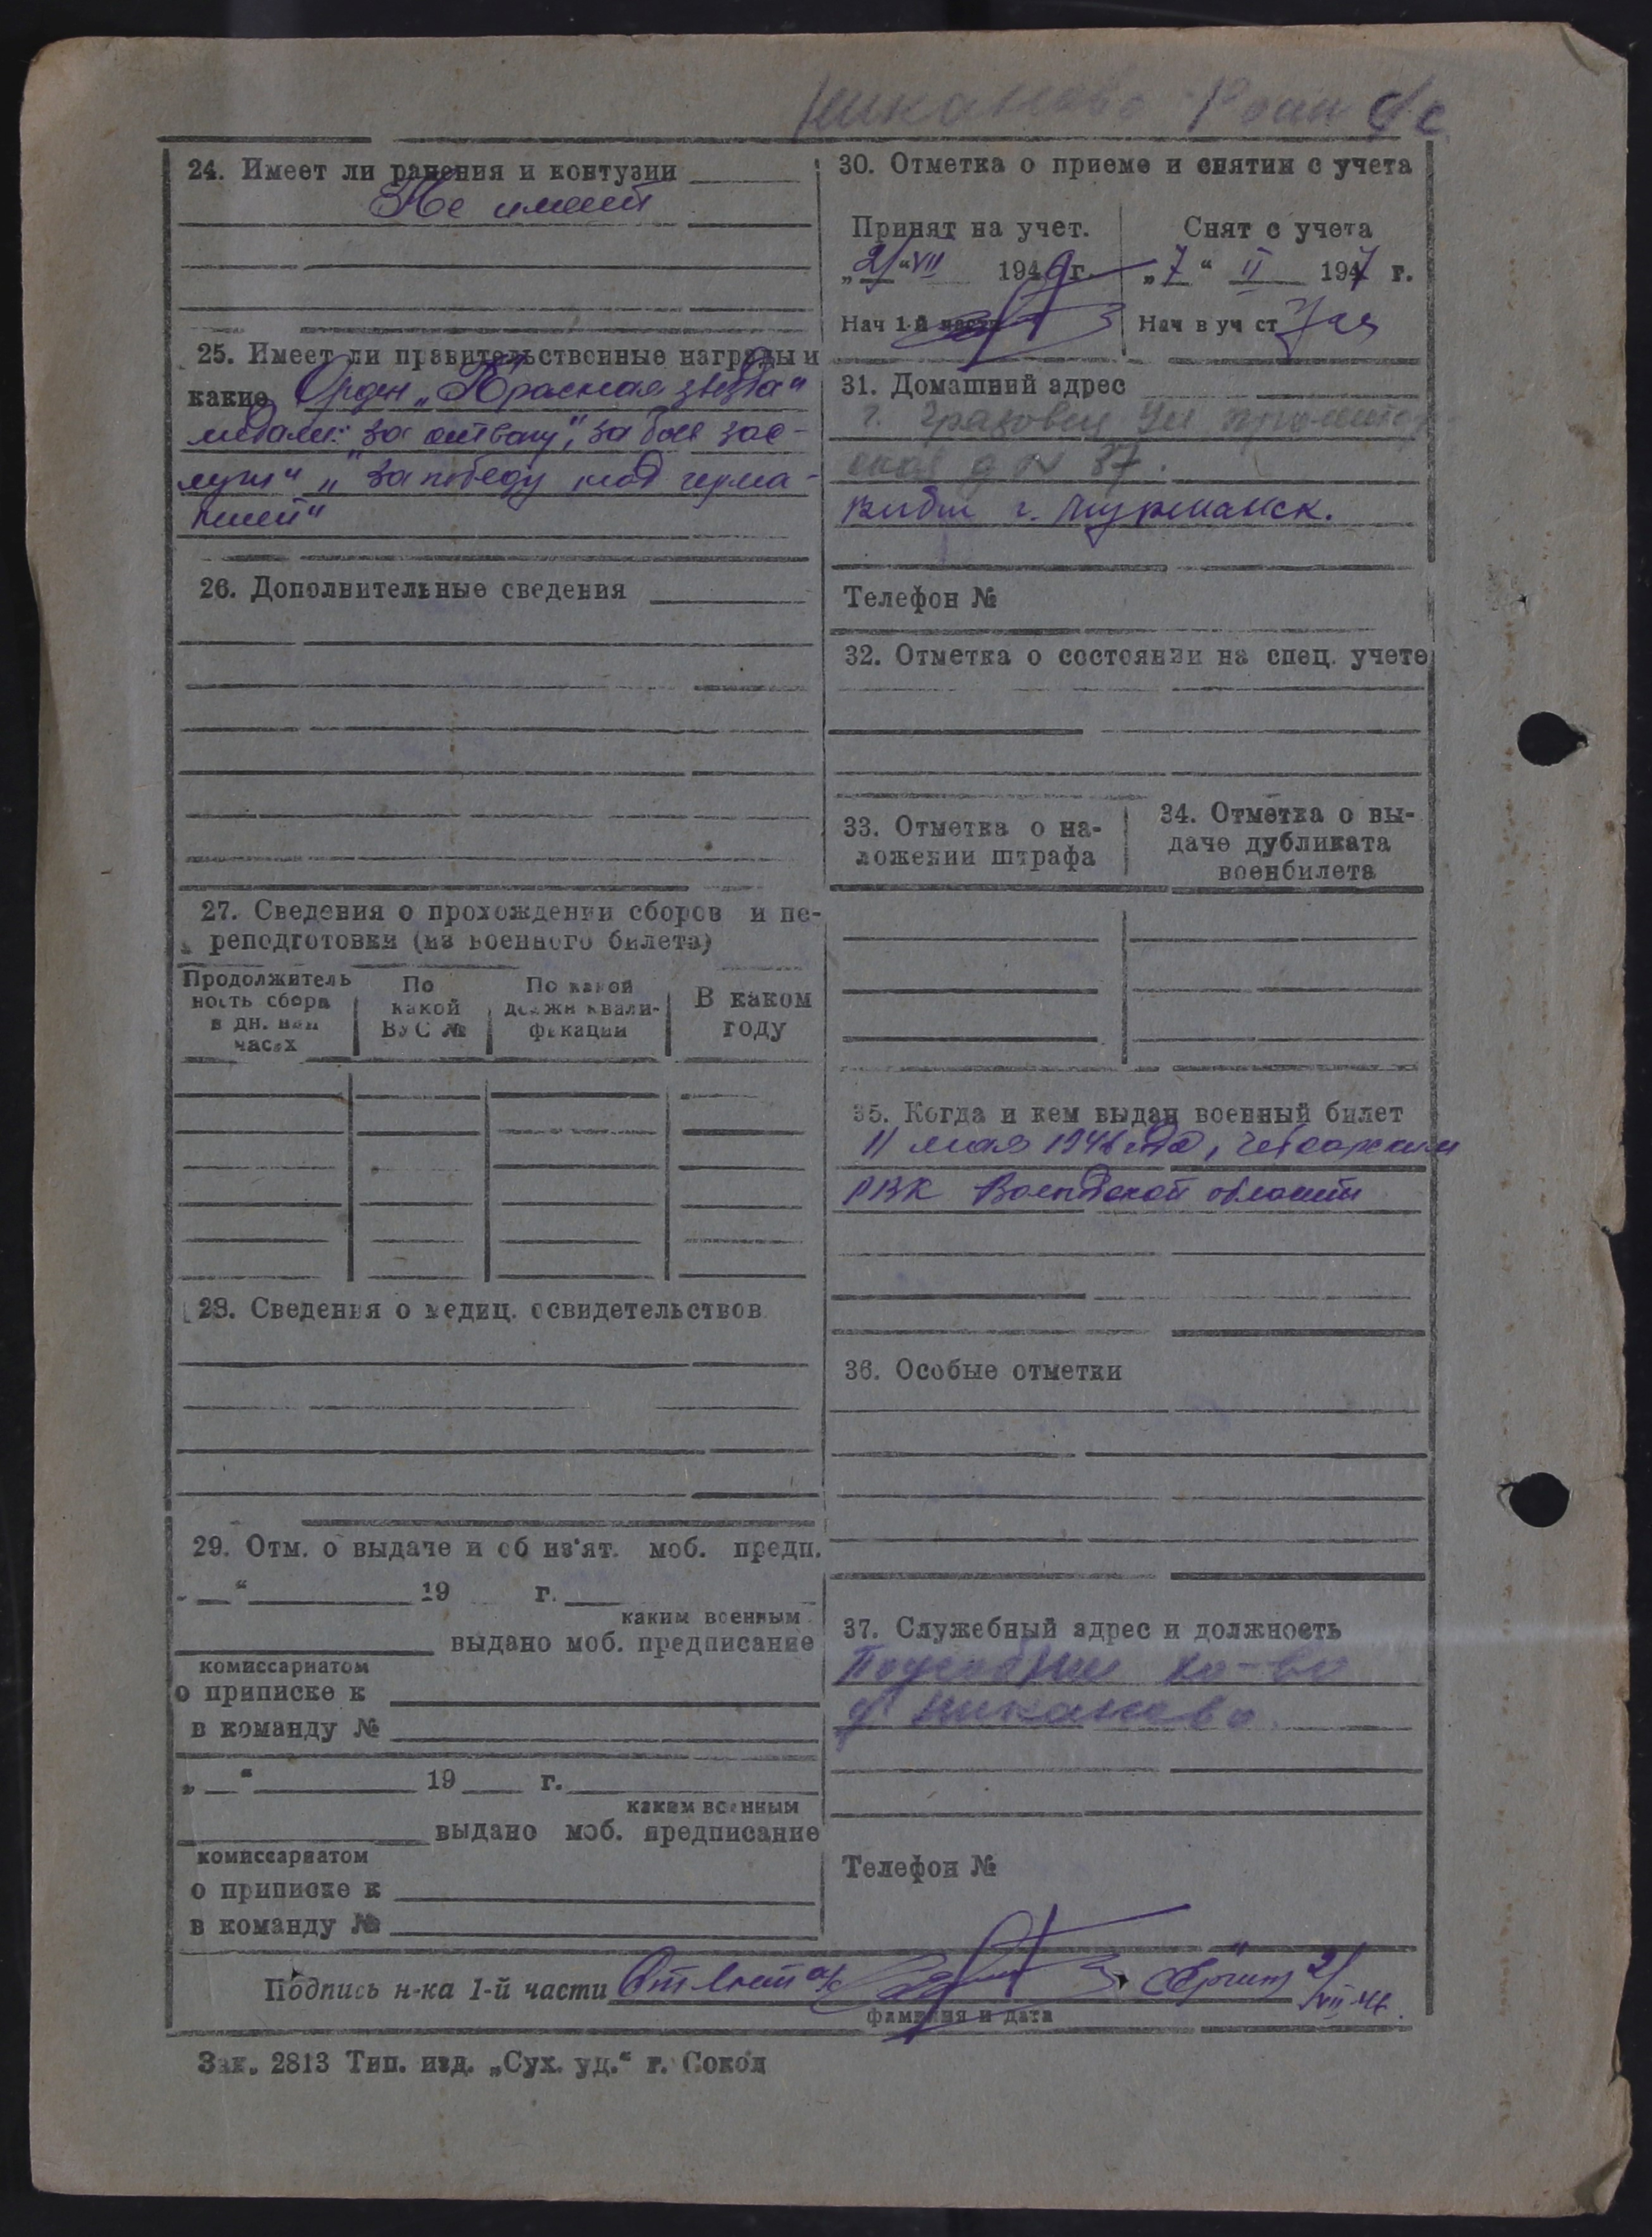 Никаново
24. Имеет ли ранения и контузии
Не имеет
25. Имеет ли правительственные награды и
какие Орден „Красная звезда“
медали: „за отвагу“, „за боев зас-
луги“ „за победу над герма-
нией“
26. Дополнительные сведения
27. Сведения о прохождении сборов и пе-
реподготовки (из военного билета)
Продолжитель
ность сбора
в дн. или
часах
По
какой
ВУС №
По какой
должн квали-
фикации
В каком
году
28. Сведения о медиц. освидетельствов
29. Отм. о выдаче и об из'ят. моб. предп.
„ “ 19 г.
каким военным
выдано моб. предписание
комиссариатом
о приписке к
в команду №
„ “ 19 г.
каким военным
выдано моб. предписание
комиссариатом
о приписке к
в команду №
30. Отметка о приеме и снятии с учета
Принят на учет.
„2“ VII 1946 г.
Нач 1-й части
Снят с учета
„7“ II 1947 г.
Нач в уч ст
31. Домашний адрес
г. Грязовец Ул
д N 37.
выбыл г. Мурманск.
Телефон №
32. Отметка о состоянии на спец. учете
33. Отметка о на-
ложении штрафа
34. Отметка о вы-
даче дубликата
военбилета
35. Когда и кем выдан военный билет
11 мая 1946 года,
РВК Вологодской области
36. Особые отметки
37. Служебный адрес и должность
Подсобное хо-во
д Никаново
Телефон №
Подпись н-ка 1-й части
фамилия и дата
Зак. 2813 Тип. изд. „Сух. уд.“ г. Сокол